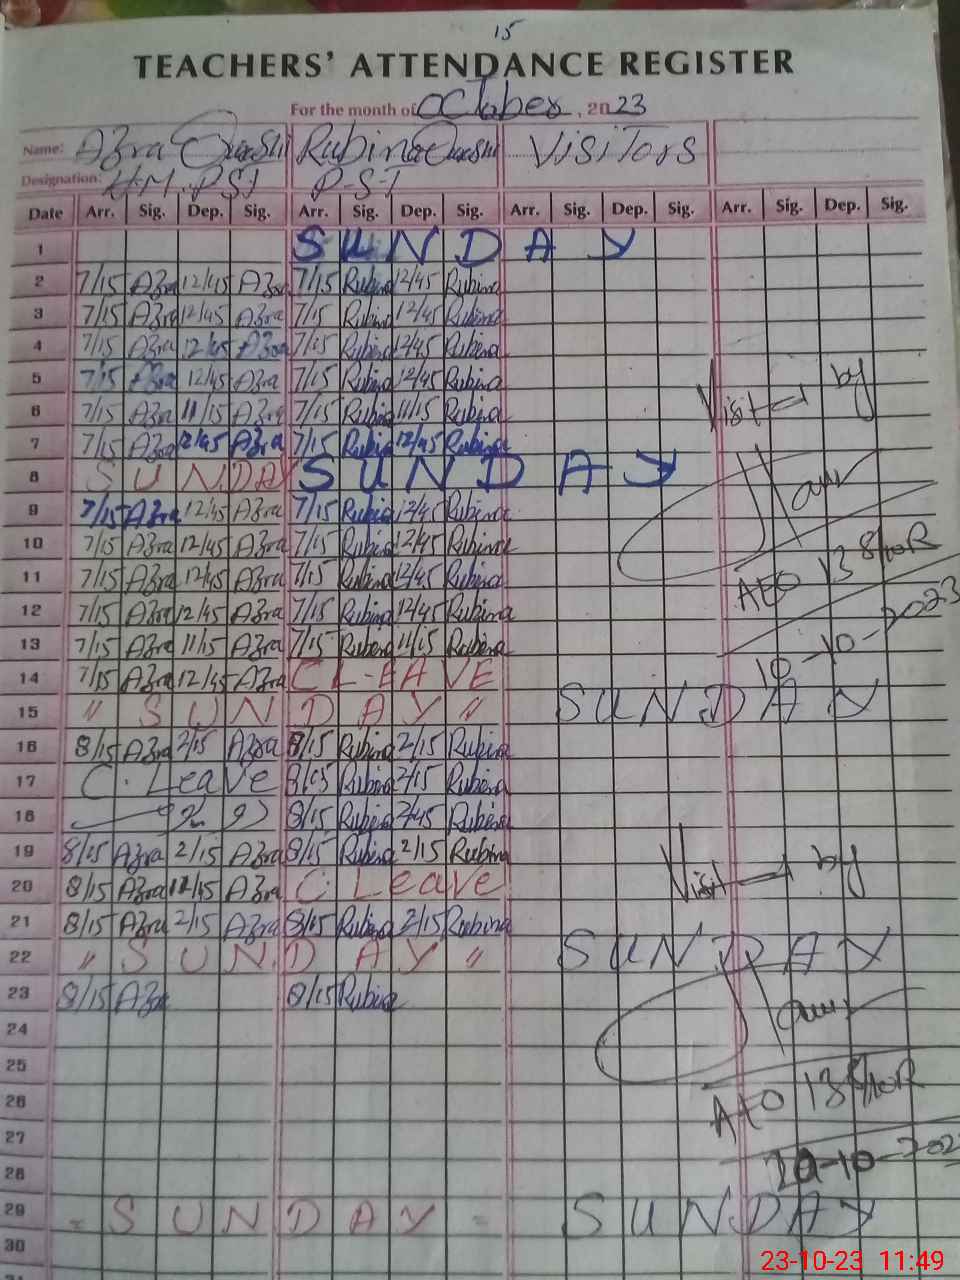 15
TEACHERS' ATTENDANCE REGISTER
For the month of October, 2023
Name: Azra Qureshi Rubina Qureshi Visitors
Designation: H.M. PST P-S-T
Date Arr. Sig. Dep. Sig. Arr. Sig. Dep. Sig. Arr. Sig. Dep. Sig. Arr. Sig. Dep. Sig.
1 SUNDAY
2 7/15 Azra 12/45 Azra 7/15 Rubina 12/45 Rubina
3 7/15 Azra 12/45 Azra 7/15 Rubina 12/45 Rubina
4 7/15 Azra 12/45 Azra 7/15 Rubina 12/45 Rubina
5 7/15 Azra 12/45 Azra 7/15 Rubina 12/45 Rubina
6 7/15 Azra 11/15 Azra 7/15 Rubina 11/15 Rubina
Visited by
7 7/15 Azra 12/45 Azra 7/15 Rubina 12/45 Rubina
8 SUNDAY SUNDAY
9 7/15 Azra 12/45 Azra 7/15 Rubina 12/45 Rubina
10 7/15 Azra 12/45 Azra 7/15 Rubina 12/45 Rubina
11 7/15 Azra 12/45 Azra 7/15 Rubina 12/45 Rubina
AEO 13
12 7/15 Azra 12/45 Azra 7/15 Rubina 12/45 Rubina
13 7/15 Azra 11/15 Azra 7/15 Rubina 11/15 Rubina
10-10-2023
14 7/15 Azra 12/45 Azra C LEAVE
15 " SUNDAY " SUNDAY
16 8/15 Azra 2/15 Azra 8/15 Rubina 2/15 Rubina
17 C. Leave 8/15 Rubina 2/15 Rubina
18 8/15 Rubina 2/45 Rubina
19 8/15 Azra 2/15 Azra 8/15 Rubina 2/15 Rubina
Visited by
20 8/15 Azra 12/45 Azra C. Leave
21 8/15 Azra 2/15 Azra 8/15 Rubina 2/15 Rubina
22 " SUNDAY " SUNDAY
23 8/15 Azra 8/15 Rubina
24
25
26
AEO 13
27
28
20-10-202
29 = SUNDAY = SUNDAY
30
23-10-23 11:49